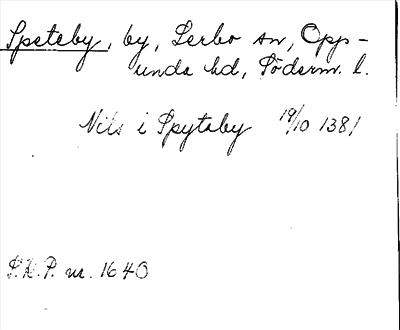 Speteby, by, Lerbo sn, Opp-
unda hd, Söderm. l.
Nils i Spytaby 19/10 1381
S.R.P. nr. 1640